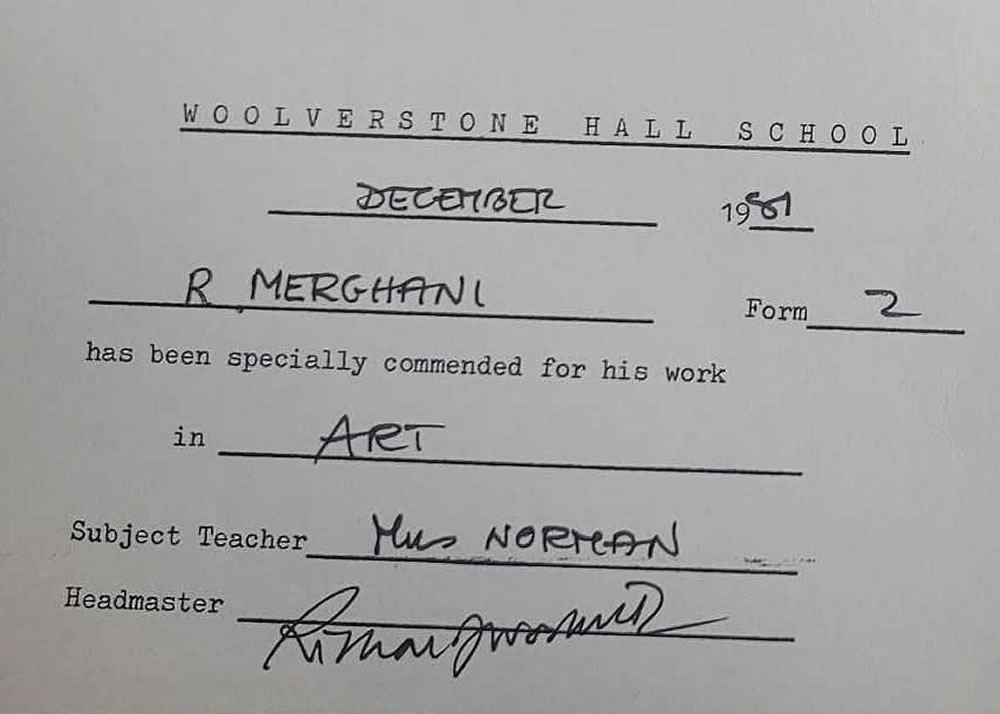 WOOLVERSTONE HALL SCHOOL
DECEMBER 1981
R MERGHANI Form 2
has been specially commended for his work
in ART
Subject Teacher Mrs NORMAN
Headmaster